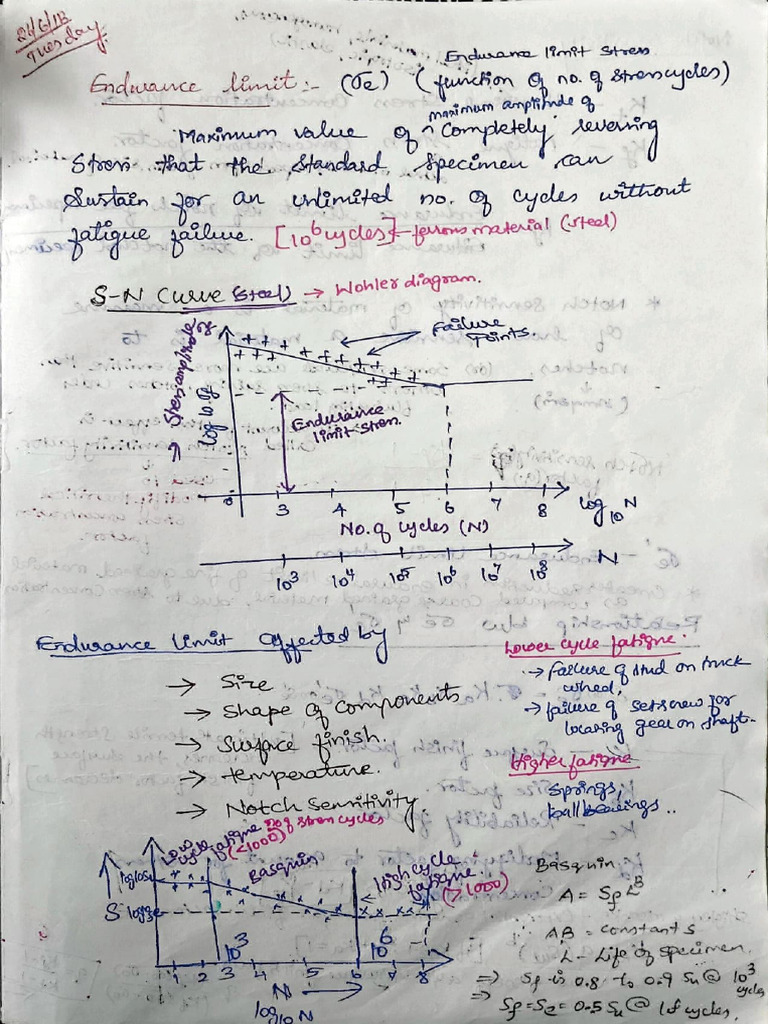 24/6/13
Tuesday
Endurance limit stress
Endurance limit :- (σe) (function of no. of stress cycles)
maximum amplitude of
Maximum value of ^ Completely reversing
Stress that the standard specimen can
Sustain for an unlimited no. of cycles without
fatigue failure. [10⁶ cycles] - ferrous material (steel)
S-N Curve (Steel) → Wohler diagram.
Failure Points.
→ Stress amplitude
log 10
Endurance limit stress.
0 3 4 5 6 7 8 log₁₀N
No. of cycles (N)
10³ 10⁴ 10⁵ 10⁶ 10⁷ 10⁸ N
Endurance limit affected by
→ Size
→ Shape of Components
→ Surface finish.
→ temperature.
→ Notch Sensitivity.
Lower cycle fatigue.
→ failure of stud on truck
wheel,
→ failure of set screw for
locating gear on shaft.
Higher fatigue
Springs,
ball bearings ..
Low cycle fatigue no. of stress cycles
(<1000)
Basquin
High cycle
fatigue
(>1000)
S
10³ 10⁶
1 2 3 4 5 6 7 8
N →
log₁₀ N
Basquin.
A = Sf L^B
AB = constants
L - Life of specimen
⇒ Sf is 0.8 to 0.9 Su @ 10³
cycles
⇒ Sf = Se = 0.5 Su @ 10⁶ cycles.